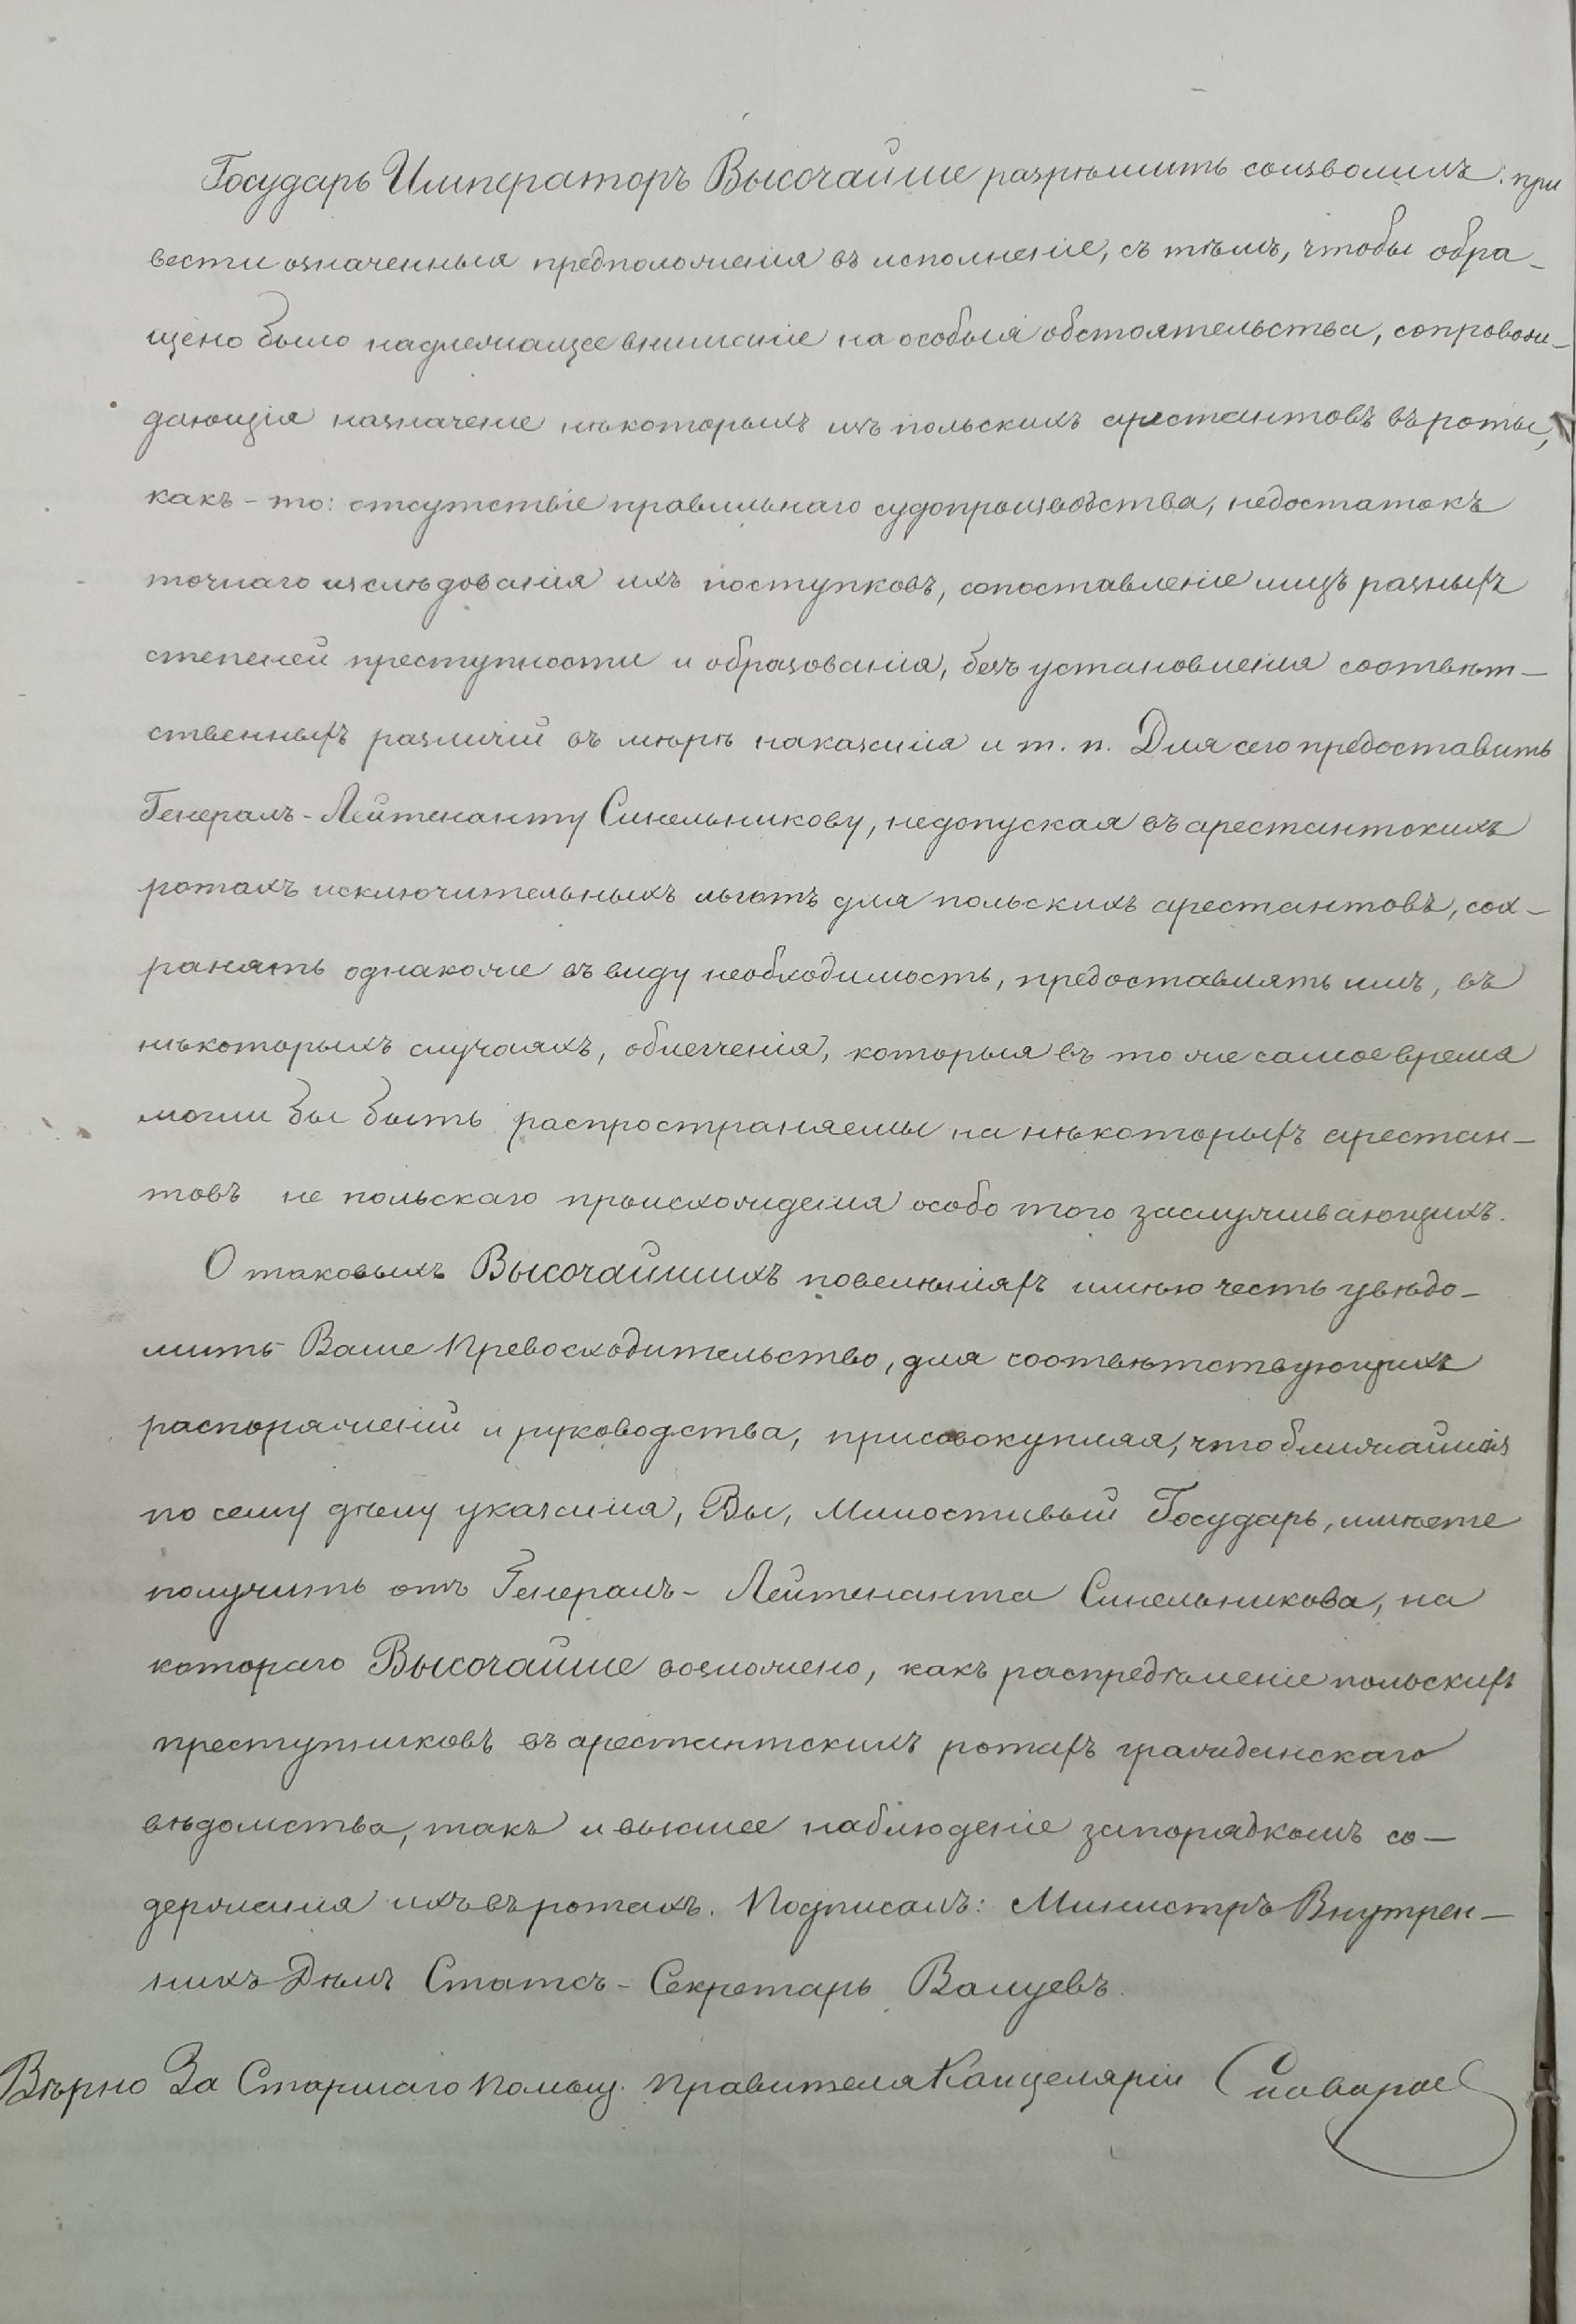 Государь Императоръ Высочайше разрѣшить соизволилъ: при
вести означенныя предположенія въ исполненіе, съ тѣмъ, чтобы обра-
щено было надлежащее вниманіе на особыя обстоятельства, сопровож-
дающія назначеніе нѣкоторыхъ изъ польскихъ арестантовъ въ роты,
какъ-то: отсутствіе правильнаго судопроизводства, недостатокъ
точнаго изслѣдованія ихъ поступковъ, сопоставленіе лицъ разныхъ
степеней преступности и образованія, безъ установленія соотвѣт-
ственныхъ различій въ мѣрѣ наказанія и т. п. Для сего предоставить
Генералъ-Лейтенанту Синельникову, недопуская въ арестантскихъ
ротахъ исключительныхъ льготъ для польскихъ арестантовъ, сох-
ранять однакоже въ виду необходимость, предоставлять имъ, въ
нѣкоторыхъ случаяхъ, облегченія, которыя въ то же самое время
могли бы быть распространяемы на нѣкоторыхъ арестан-
товъ не польскаго происхожденія особо того заслуживающихъ.
О таковыхъ Высочайшихъ повелѣніяхъ имѣю честь увѣдо-
мить Ваше Превосходительство, для соотвѣтствующихъ
распоряженій и руководства, присовокупляя, что ближайшія
по сему дѣлу указанія, Вы, Милостивый Государь, имѣете
получить отъ Генералъ- Лейтенанта Синельникова, на
котораго Высочайше возложено, какъ распредѣленіе польскихъ
преступниковъ въ арестантскихъ ротахъ гражданскаго
вѣдомства, такъ и высшее наблюденіе за порядкомъ со-
держанія ихъ въ ротахъ. Подписалъ: Министръ Внутрен-
нихъ Дѣлъ Статсъ-Секретарь Валуевъ.
Вѣрно За Старшаго Помощ. Правителя Канцеляріи